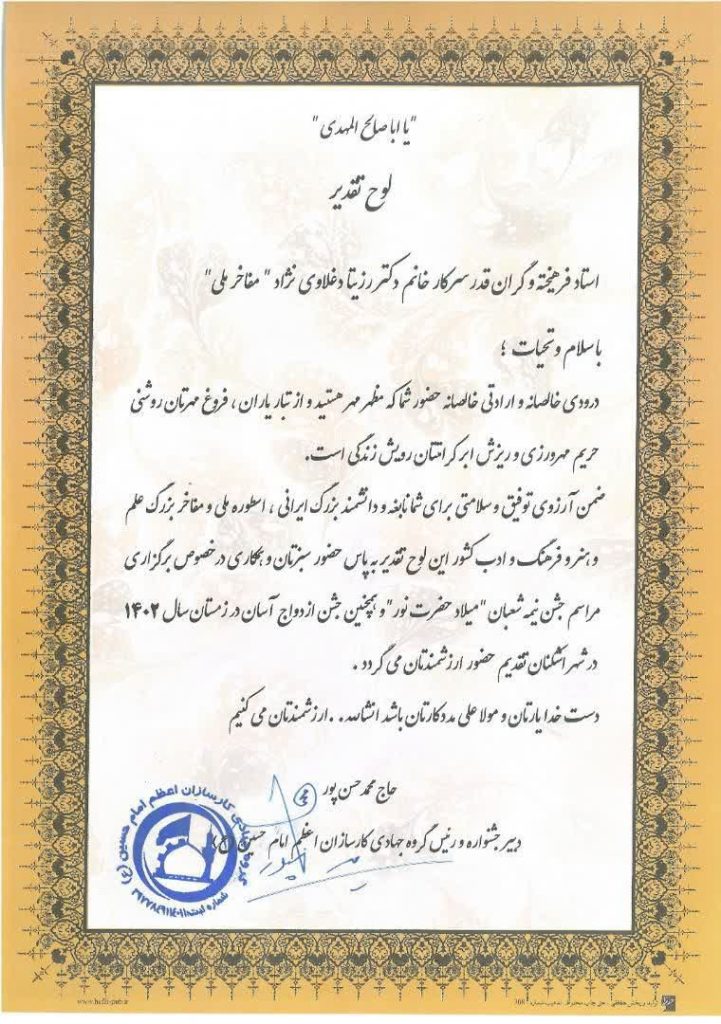 "یا ابا صالح المهدی"
لوح تقدیر
استاد فرهیخته و گران قدر سرکار خانم دکتر رزیتا دغلاوی نژاد "مفاخر ملی"
با سلام و تحیات ؛
درودی خالصانه و ارادتی خالصانه حضور شما که مظهر مهر هستید و از تبار یاران ، فروغ مهرتان روشنی
حریم مهرورزی و ریزش ابر کرامتتان رویش زندگی است.
ضمن آرزوی توفیق و سلامتی برای شما نابغه و دانشمند بزرگ ایرانی ، اسطوره ملی و مفاخر بزرگ علم
و هنر و فرهنگ و ادب کشور این لوح تقدیر به پاس حضور سبزتان و همکاری در خصوص برگزاری
مراسم جشن نیمه شعبان "میلاد حضرت نور" و همچنین جشن ازدواج آسان در زمستان سال ۱۴۰۲
در شهر اشکنان تقدیم حضور ارزشمندتان می گردد .
دست خدا یارتان و مولا علی مددکارتان باشد انشاالله . . ارزشمندتان می کنیم
حاج محمد حسن پور
دبیر جشنواره و رئیس گروه جهادی کارسازان اعظم امام حسین (ع)
گروه جهادی کارسازان اعظم امام حسین (ع)
شماره ثبت:
www.hafti-pub.ir